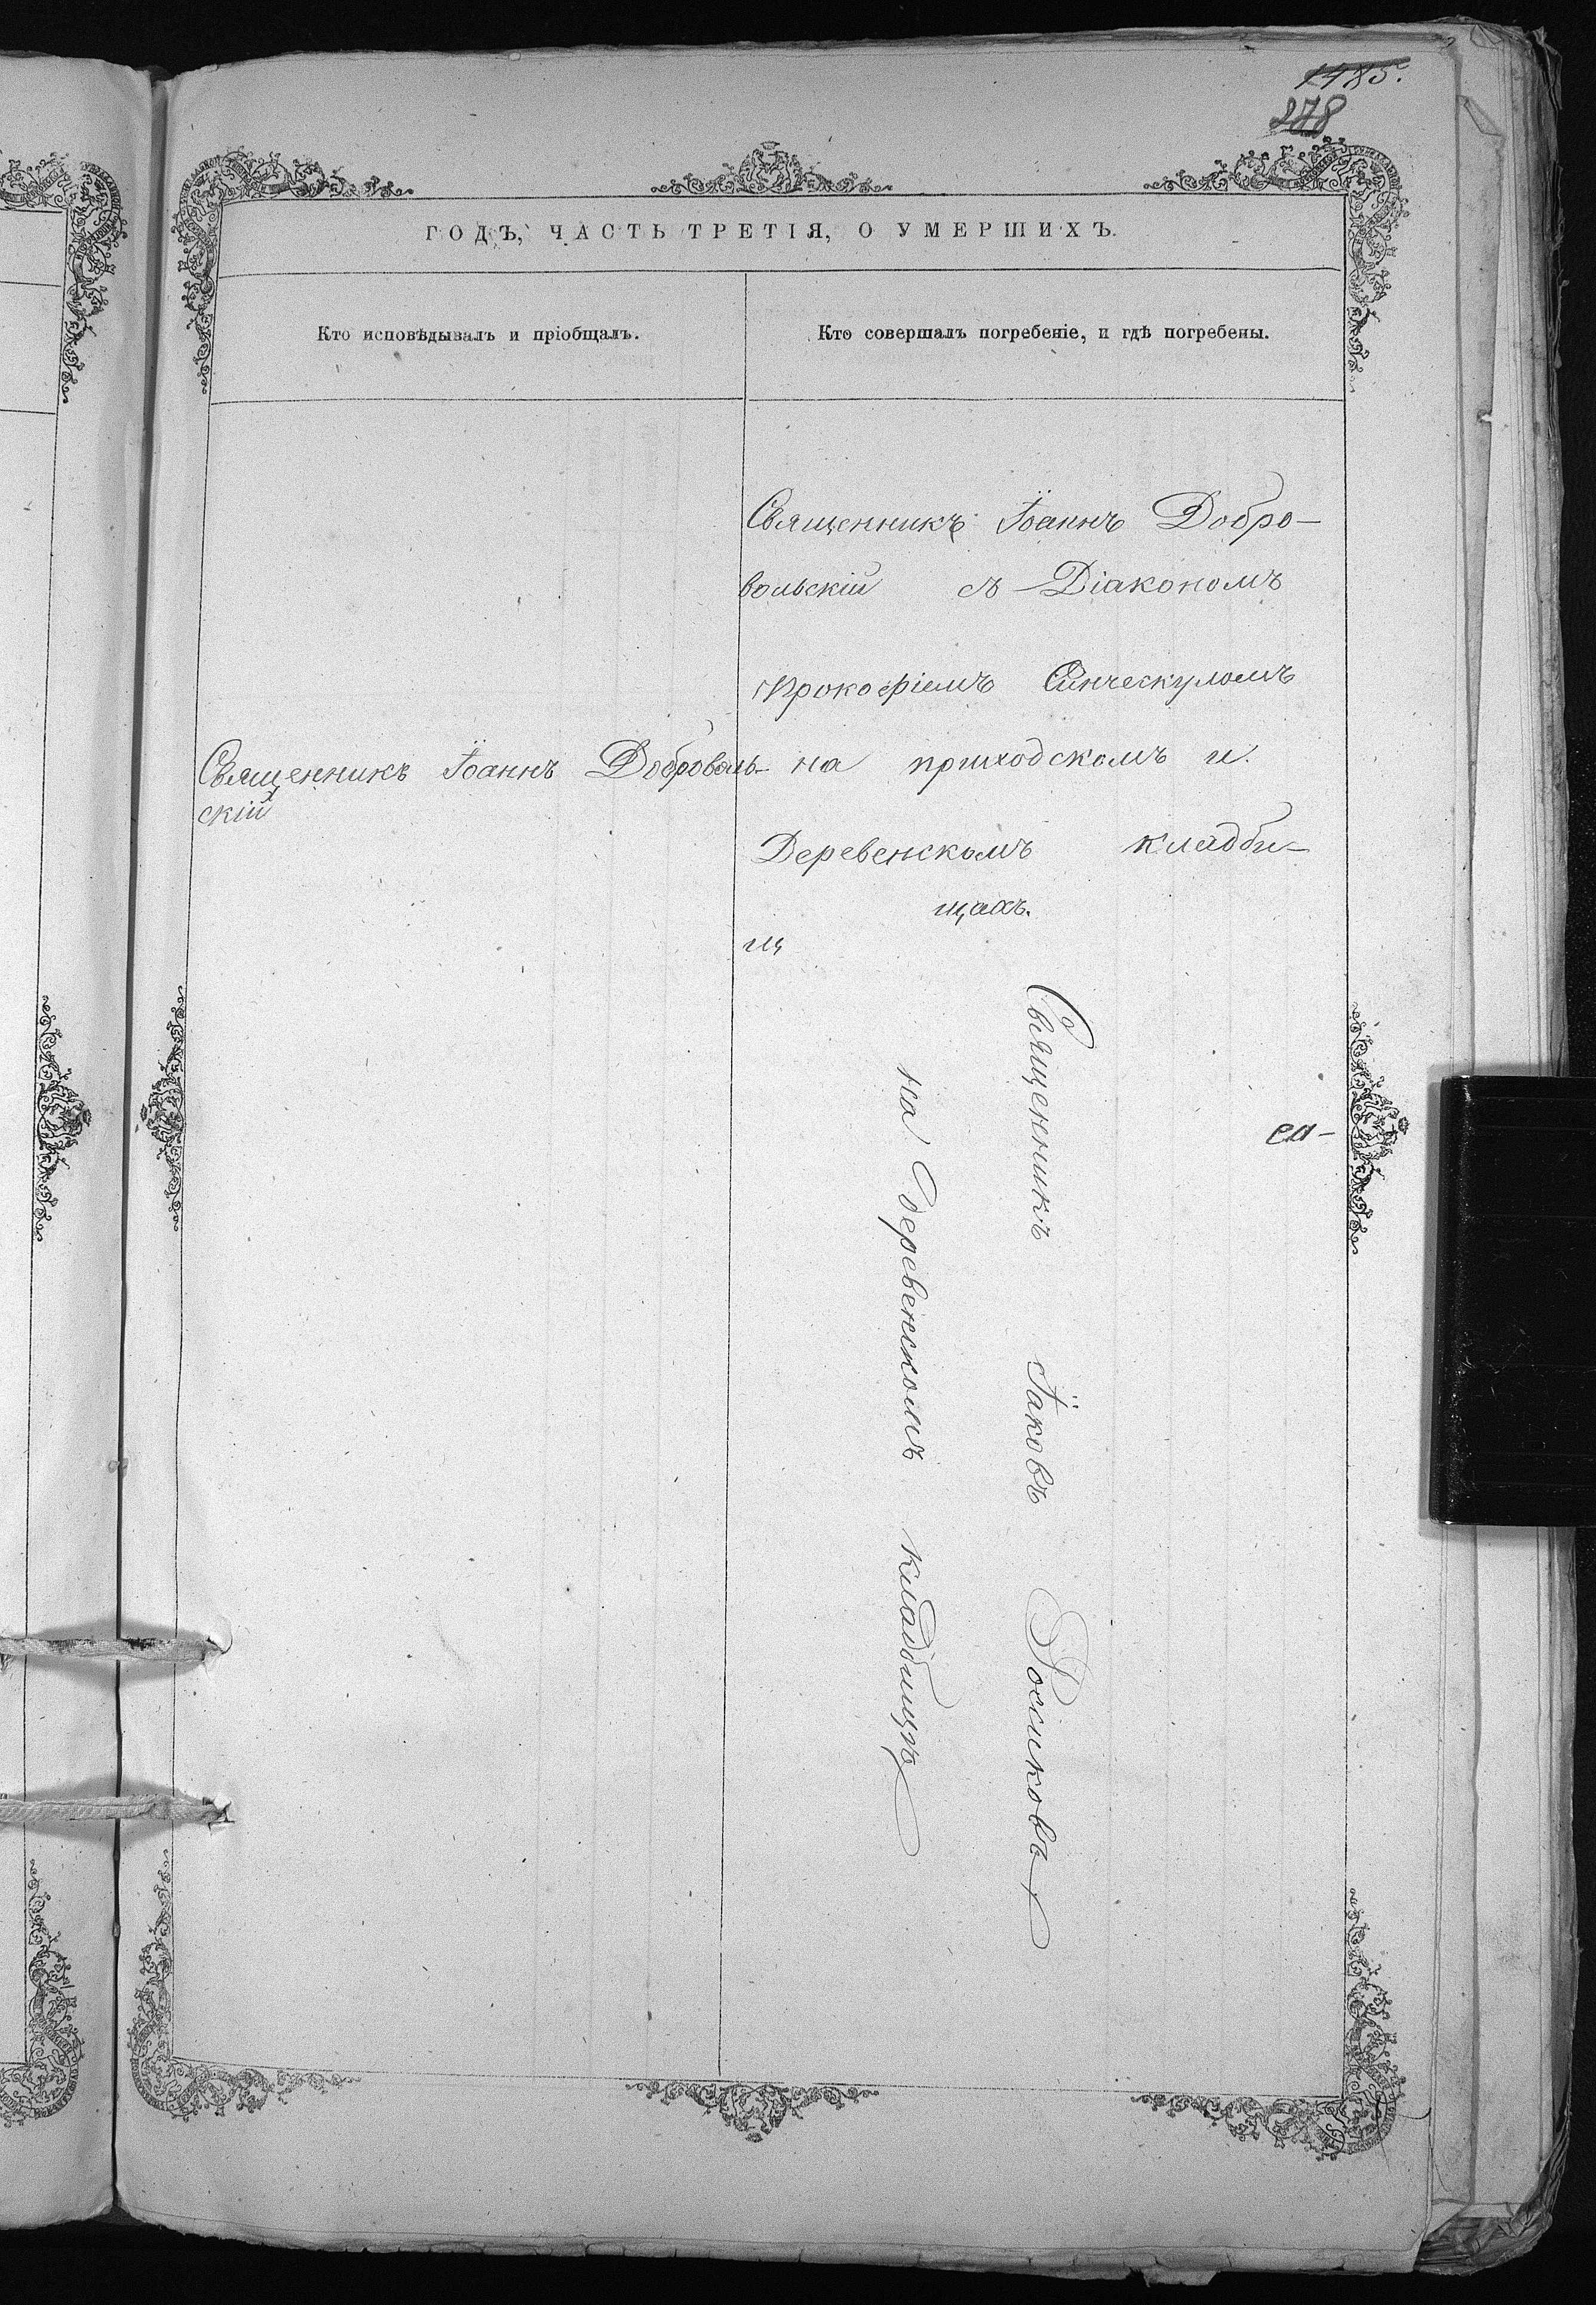 1485.
278
ГОДЪ, ЧАСТЬ ТРЕТІЯ, О УМЕРШИХЪ.
Кто исповѣдывалъ и пріобщалъ.
Кто совершалъ погребеніе, и гдѣ погребены.
Священникъ Іоаннъ Доброволь-
скій
Священникъ Іоаннъ Добро-
вольскій съ Діакономъ
Прокофіемъ
на приходскомъ и
Деревенскомъ кладби-
щахъ.
Священникъ Іаковъ
на деревенскомъ кладбищѣ